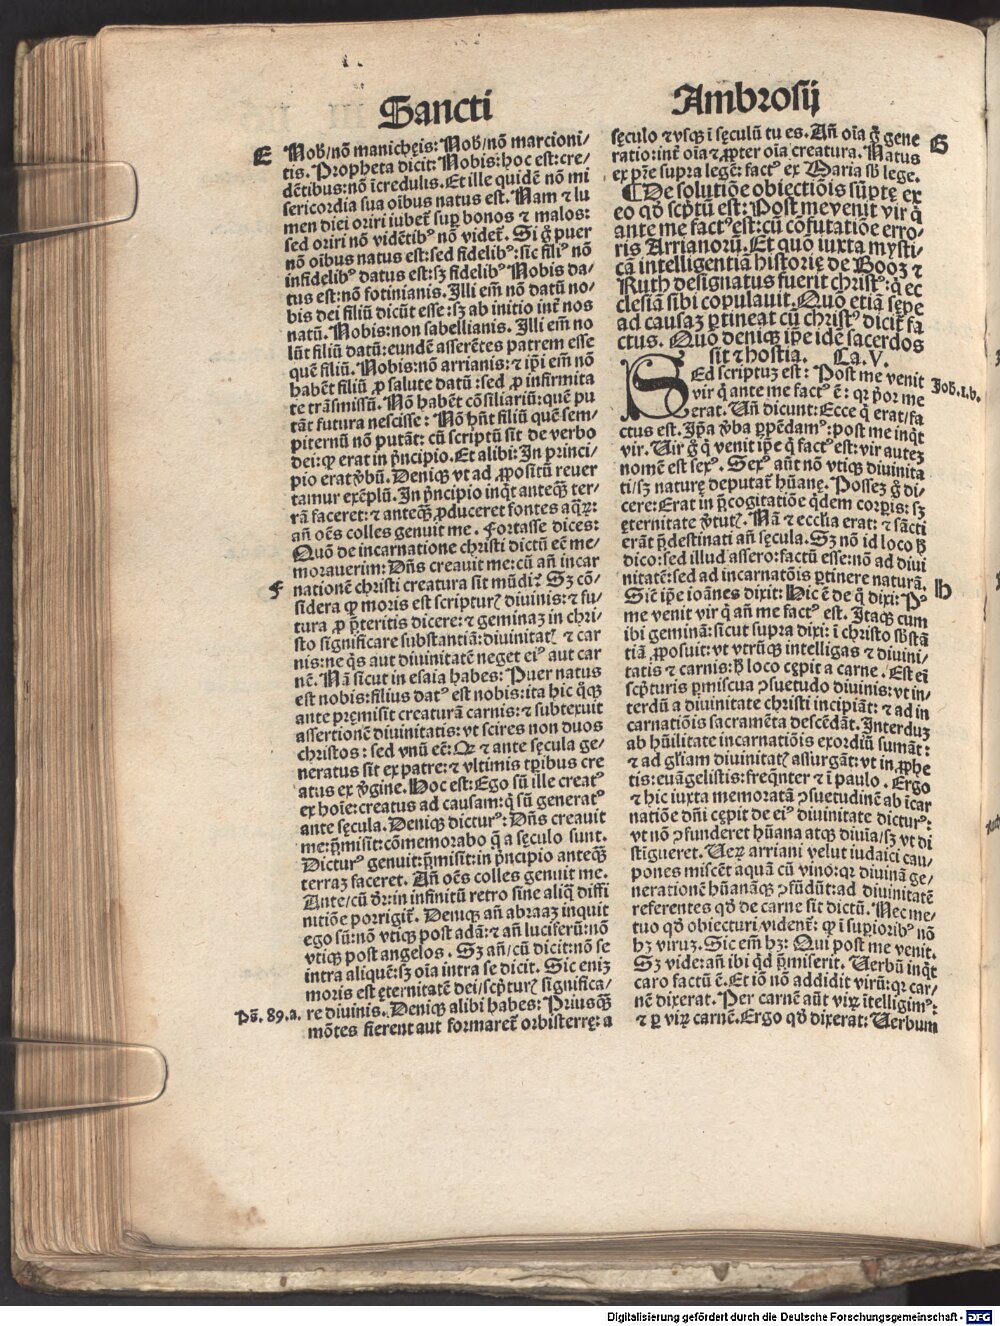 Sancti
E Nob̄/nō manichęis: Nob̄/nō marcioni/
tis. Propheta dicit: Nobis: hoc est: cre/
dētibus: nō īcredulis. Et ille quidē nō mi
sericordia sua oībus natus est. Nam ⁊ lu
men diei oriri iubet̄ suꝑ bonos ⁊ malos:
sed oriri nō vidētibꝰ nō videt̄. Si ḡ puer
nō oībus natus est: sed fidelibꝰ: sic filiꝰ nō
infidelibꝰ datus est: sꝫ fidelibꝰ Nobis da/
tus est: nō fotinianis. Illi em̄ nō datū no/
bis dei filiū dicūt esse: sꝫ ab initio int̄ nos
natū. Nobis: non sabellianis. Illi em̄ no
lūt filiū datū: eundē asserētes patrem esse
quē filiū. Nobis: nō arrianis: ⁊ ip̄i em̄ nō
habēt filiū ꝓ salute datū: sed ꝓ infirmita
te trāsmissū. Nō habēt cōsiliariū: quē pu
tāt futura nescisse: Nō hn̄t filiū quē sem/
piternū nō putāt: cū scriptū sit de verbo
dei: qꝫ erat in p̄ncipio. Et alibi: In princi/
pio erat v̄bū. Deniqꝫ vt ad ꝓpositū reuer
tamur exēplū. In p̄ncipio inq̄t anteqꝫ̄ ter/
rā faceret: ⁊ anteqꝫ̄ ꝓduceret fontes aq̄ꝝ:
añ oēs colles genuit me. Fortasse dices:
Quō de incarnatione christi dictū eē me/
morauerim: Dn̄s creauit me: cū añ incar
F nationē christi creatura sit mūdi? Sꝫ cō/
sidera qꝫ moris est scripturꝭ diuinis: ⁊ fu/
tura ꝓ p̄teritis dicere: ⁊ geminaꝫ in chri/
sto significare substantiā: diuinitatꝭ ⁊ car
nis: ne q̄s aut diuinitatē neget eiꝰ aut car
nē. Nā sicut in esaia habes: Puer natus
est nobis: filius datꝰ est nobis: ita hic q̄qꝫ
ante pręmisit creaturā carnis: ⁊ subtexuit
assertionē diuinitatis: vt scires non duos
christos: sed vnū eē: Qꝛ ⁊ ante sęcula ge/
neratus sit ex patre: ⁊ vltimis tꝑibus cre
atus ex v̄gine. Hoc est: Ego sū ille creatꝰ
ex hoīe: creatus ad causam: q̄ sū generatꝰ
ante sęcula. Deniqꝫ dicturꝰ: Dn̄s creauit
me: p̄misit: cōmemorabo q̄ a sęculo sunt.
Dicturꝰ genuit: p̄misit: in p̄ncipio anteqꝫ̄
terraꝫ faceret. Añ oēs colles genuit me.
Ante/cū dr̄: in infinitū retro sine aliq̄ diffi
nitiōe porrigit̄. Deniqꝫ añ abraaꝫ inquit
ego sū: nō vtiqꝫ post adā: ⁊ añ luciferū: nō
vtiqꝫ post angelos. Sꝫ añ/cū dicit: nō se
intra aliquē: sꝫ oīa intra se dicit. Sic eniꝫ
moris est ęternitatē dei/scp̄turꝭ significa/
Ps̄. 89.a. re diuinis. Deniqꝫ alibi habes: Priusqꝫ̄
mōtes fierent aut formaret̄ orbis terrę: a
Ambrosij
sęculo ⁊ vsqꝫ ī sęculū tu es. Añ oīa ḡ gene G
ratio: int̄ oīa ⁊ ꝓpter oīa creatura. Natus
ex pr̄e supra legē: factꝰ ex Maria sb̄ lege.
¶De solutiōe obiectiōis sūptę ex
eo qd̄ scp̄tū est: Post me venit vir q̄
ante me factꝰ est: cū cōfutatiōe erro/
ris Arrianorū. Et quō iuxta mysti/
cā intelligentiā historię de Booꝫ ⁊
Ruth designatus fuerit christꝰ: q̄ ec
clesiā sibi copulauit. Quō etiā sępe
ad causaꝫ ꝑtineat cū christꝰ dicit̄ fa
ctus. Quō deniqꝫ ip̄e idē sacerdos
sit ⁊ hostia. Ca. V.
SEd scriptuꝫ est: Post me venit Joh. 1.b.
vir q̄ ante me factꝰ ē: qꝛ p̄or me
erat. Uñ dicunt: Ecce q̄ erat/fa
ctus est. Ip̄a v̄ba ꝑpēdamꝰ: post me inq̄t
vir. Uir ḡ q̄ venit ip̄e q̄ factꝰ est: vir auteꝫ
nomē est sexꝰ. Sexꝰ aūt nō vtiqꝫ diuinita
ti/sꝫ naturę deputat̄ hūanę. Posseꝫ ḡ di/
cere: Erat in p̄cogitatiōe q̄dem corꝑis: sꝫ
ęternitate v̄tutꝭ. Nā ⁊ ecclīa erat: ⁊ sācti
erāt p̄destinati añ sęcula. Sꝫ nō id loco h̄
dico: sed illud assero: factū esse: nō ad diui
nitatē: sed ad incarnatōis ꝑtinere naturā.
Sic ip̄e ioānes dixit: Hic ē de q̄ dixi: Pꝰ H
me venit vir q̄ añ me factꝰ est. Itaqꝫ cum
ibi geminā: sicut supra dixi: ī christo sb̄stā
tiā ꝓposuit: vt vtrūqꝫ intelligas ⁊ diuini/
tatis ⁊ carnis: h̄ loco cępit a carne. Est ei̅
scp̄turis ꝑmiscua ꝯsuetudo diuinis: vt in/
terdū a diuinitate christi incipiāt: ⁊ ad in
carnatiōis sacramēta descēdāt. Interduꝫ
ab hūilitate incarnatiōis exordiū sumāt:
⁊ ad gl̄iam diuinitatꝭ assurgāt: vt in ꝓphe
tis: euāgelistis: freq̄nter ⁊ ī paulo. Ergo
⁊ hic iuxta memoratā ꝯsuetudinē ab īcar
natiōe dn̄i cępit de eiꝰ diuinitate dicturꝰ:
vt nō ꝯfunderet hūana atqꝫ diuīa/sꝫ vt di
stigueret. Ueꝝ arriani velut iudaici cau/
pones miscēt aquā cū vino: qꝛ diuinā ge/
nerationē hūanāqꝫ ꝯfūdūt: ad diuinitatē
referentes qd̄ de carne sit dictū. Nec me/
tuo qd̄ obiecturi vident̄: qꝫ ī suꝑioribꝰ nō
hꝫ viruꝫ. Sic em̄ hꝫ: Qui post me venit.
Sꝫ vide: añ ibi q̄d p̄miserit. Uerbū inq̄t
caro factū ē. Et iō nō addidit virū: qꝛ car/
nē dixerat. Per carnē aūt viꝝ ītelligimꝰ:
⁊ ꝑ viꝝ carnē. Ergo qd̄ dixerat: Uerbum
Digitalisierung gefördert durch die Deutsche Forschungsgemeinschaft - DFG